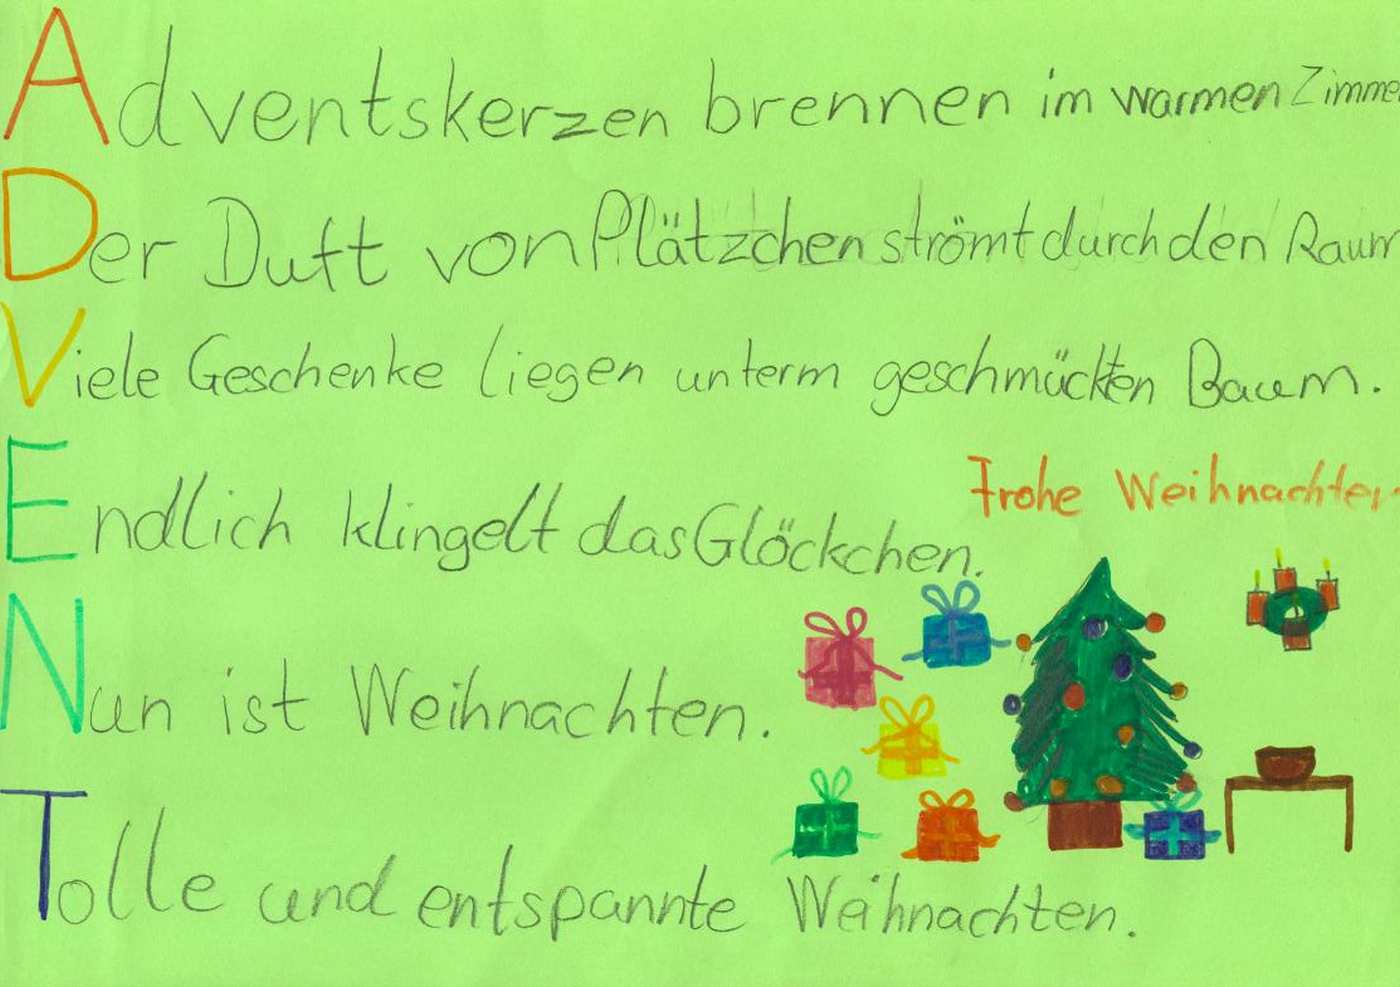 Adventskerzen brennen im warmen Zimme
Der Duft von Plätzchen strömt durch den Raum
Viele Geschenke liegen unterm geschmückten Baum.
Endlich klingelt das Glöckchen.
Frohe Weihnachten
Nun ist Weihnachten.
Tolle und entspannte Weihnachten.